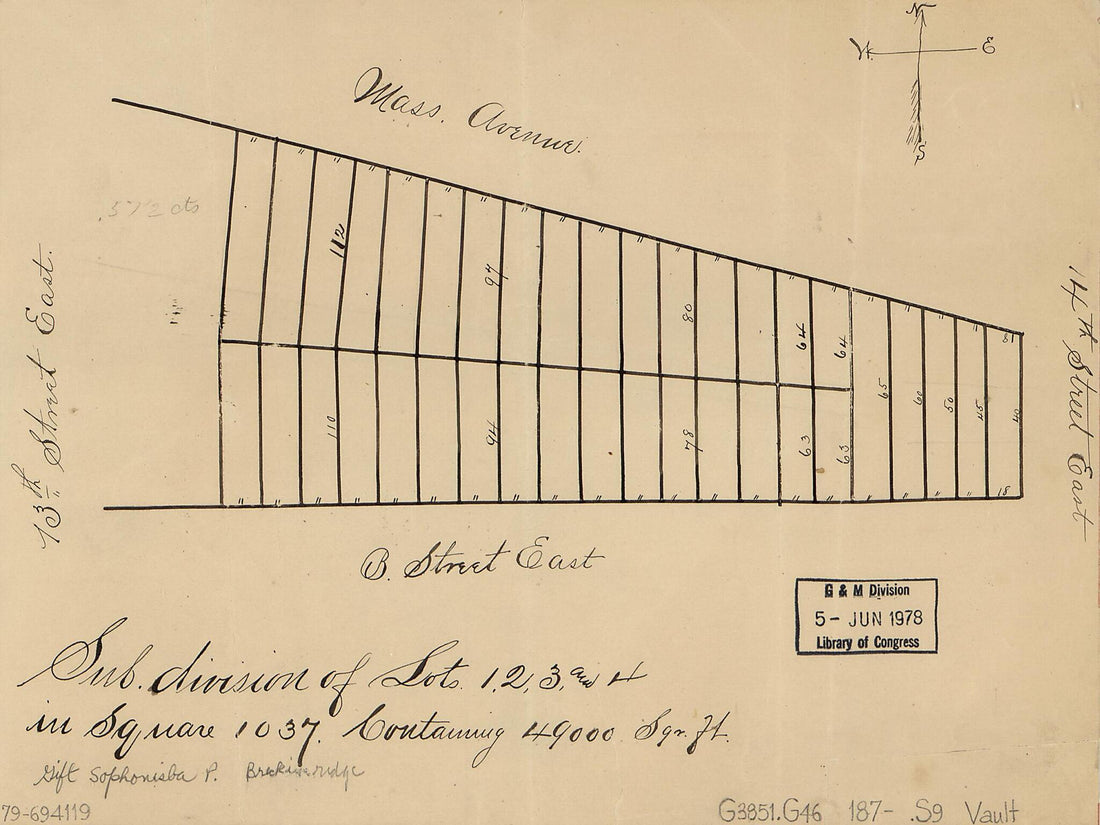 N
W E
S
Mass. Avenue.
.37½ cts
13th Street East.
14th Street East
112
97
80
64
64
51
65
60
50
45
40
110
94
78
63
63
18
B. Street East
G & M Division
5 - JUN 1978
Library of Congress
Sub. division of Lots. 1, 2, 3, and 4
in Square 1037. Containing 49000 Sqr. ft.
Gift Sophonisba P. Breckinridge
79-694119
G3851.G46 187- .S9 Vault